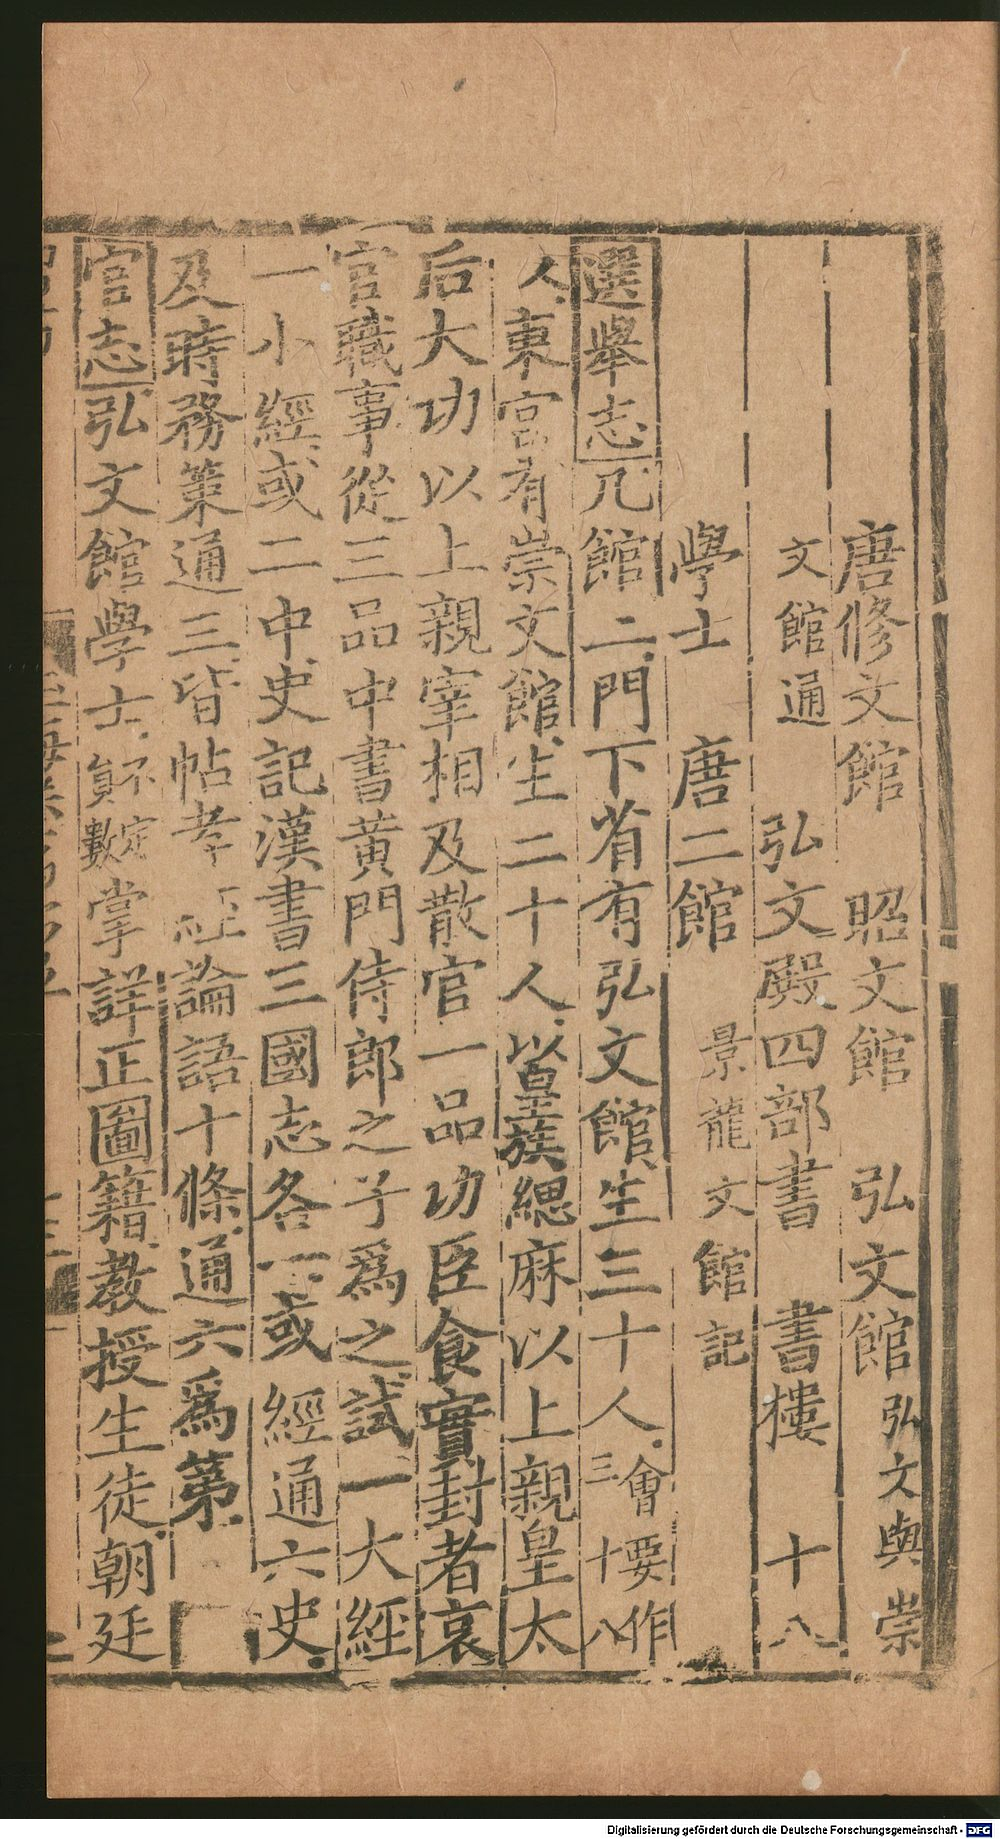 唐修文館　昭文館　弘文館弘文與崇
文館通　弘文殿四部書　書樓　十八
學士　唐二館　景龍文館記
選舉志凡館二門下省有弘文館生三十人會要作三十八
人東宮有崇文館生二十人以皇族緦麻以上親皇太
后大功以上親宰相及散官一品功臣食實封者袞
官職事從三品中書黃門侍郎之子爲之試一大經
一小經或二中史記漢書三國志各一或經通六史
及時務策通三皆帖孝經論語十條通六爲第
官志弘文館學士員不定數掌詳正圖籍教授生徒朝廷
Digitalisierung gefördert durch die Deutsche Forschungsgemeinschaft - DFG